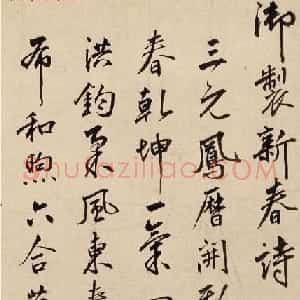 御製新春詩
三元鳳曆開
春乾坤一氣
洪鈞
風東
希和煦六合
Shufaziliao.com